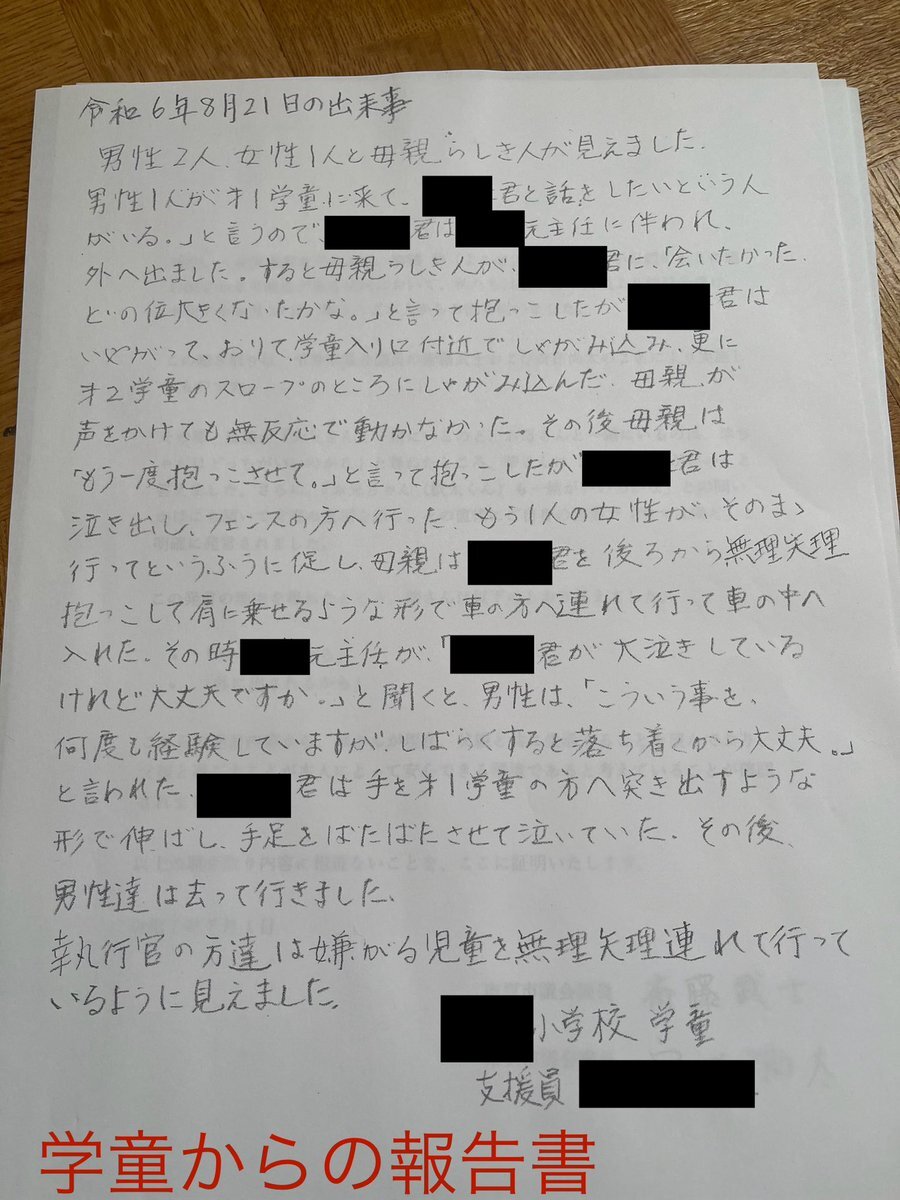 令和6年8月21日の出来事
男性2人、女性1人と母親らしき人が見えました。
男性1人が才1学童に来て、君と話をしたいという人
がいる。」と言うので、君は元主任に伴われ、
外へ出ました。すると母親らしき人が、君に、「会いたかった、
どの位大きくなったかな。」と言って抱っこしたが君は
いやがって、おりて、学童入り口付近でしゃがみ込み、更に
才2学童のスロープのところにしゃがみ込んだ、母親が
声をかけても無反応で動かなかった。その後母親は
「もう一度抱っこさせて。」と言って抱っこしたが君は
泣き出し、フェンスの方へ行った、もう1人の女性が、そのまゝ
行ってというふうに促し、母親は君を後ろから無理矢理
抱っこして肩に乗せるような形で車の方へ連れて行って車の中へ
入れた。その時元主任が、「君が大泣きしている
けれど大丈夫ですか。」と聞くと、男性は、「こういう事を、
何度も経験していますがしばらくすると落ち着くから大丈夫。」
と言われた、君は手を才1学童の方へ突き出すような
形で伸ばし、手足をばたばたさせて泣いていた。その後、
男性達は去って行きました、
執行官の方達は嫌がる児童を無理矢理連れて行って
いるように見えました。
小学校 学童
支援員
学童からの報告書